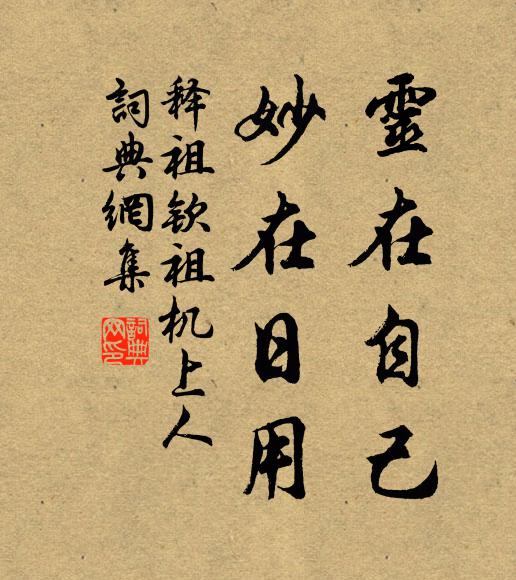 靈在自己
妙在日用
释祖钦祖机上人
詞典網集
詞典
网印